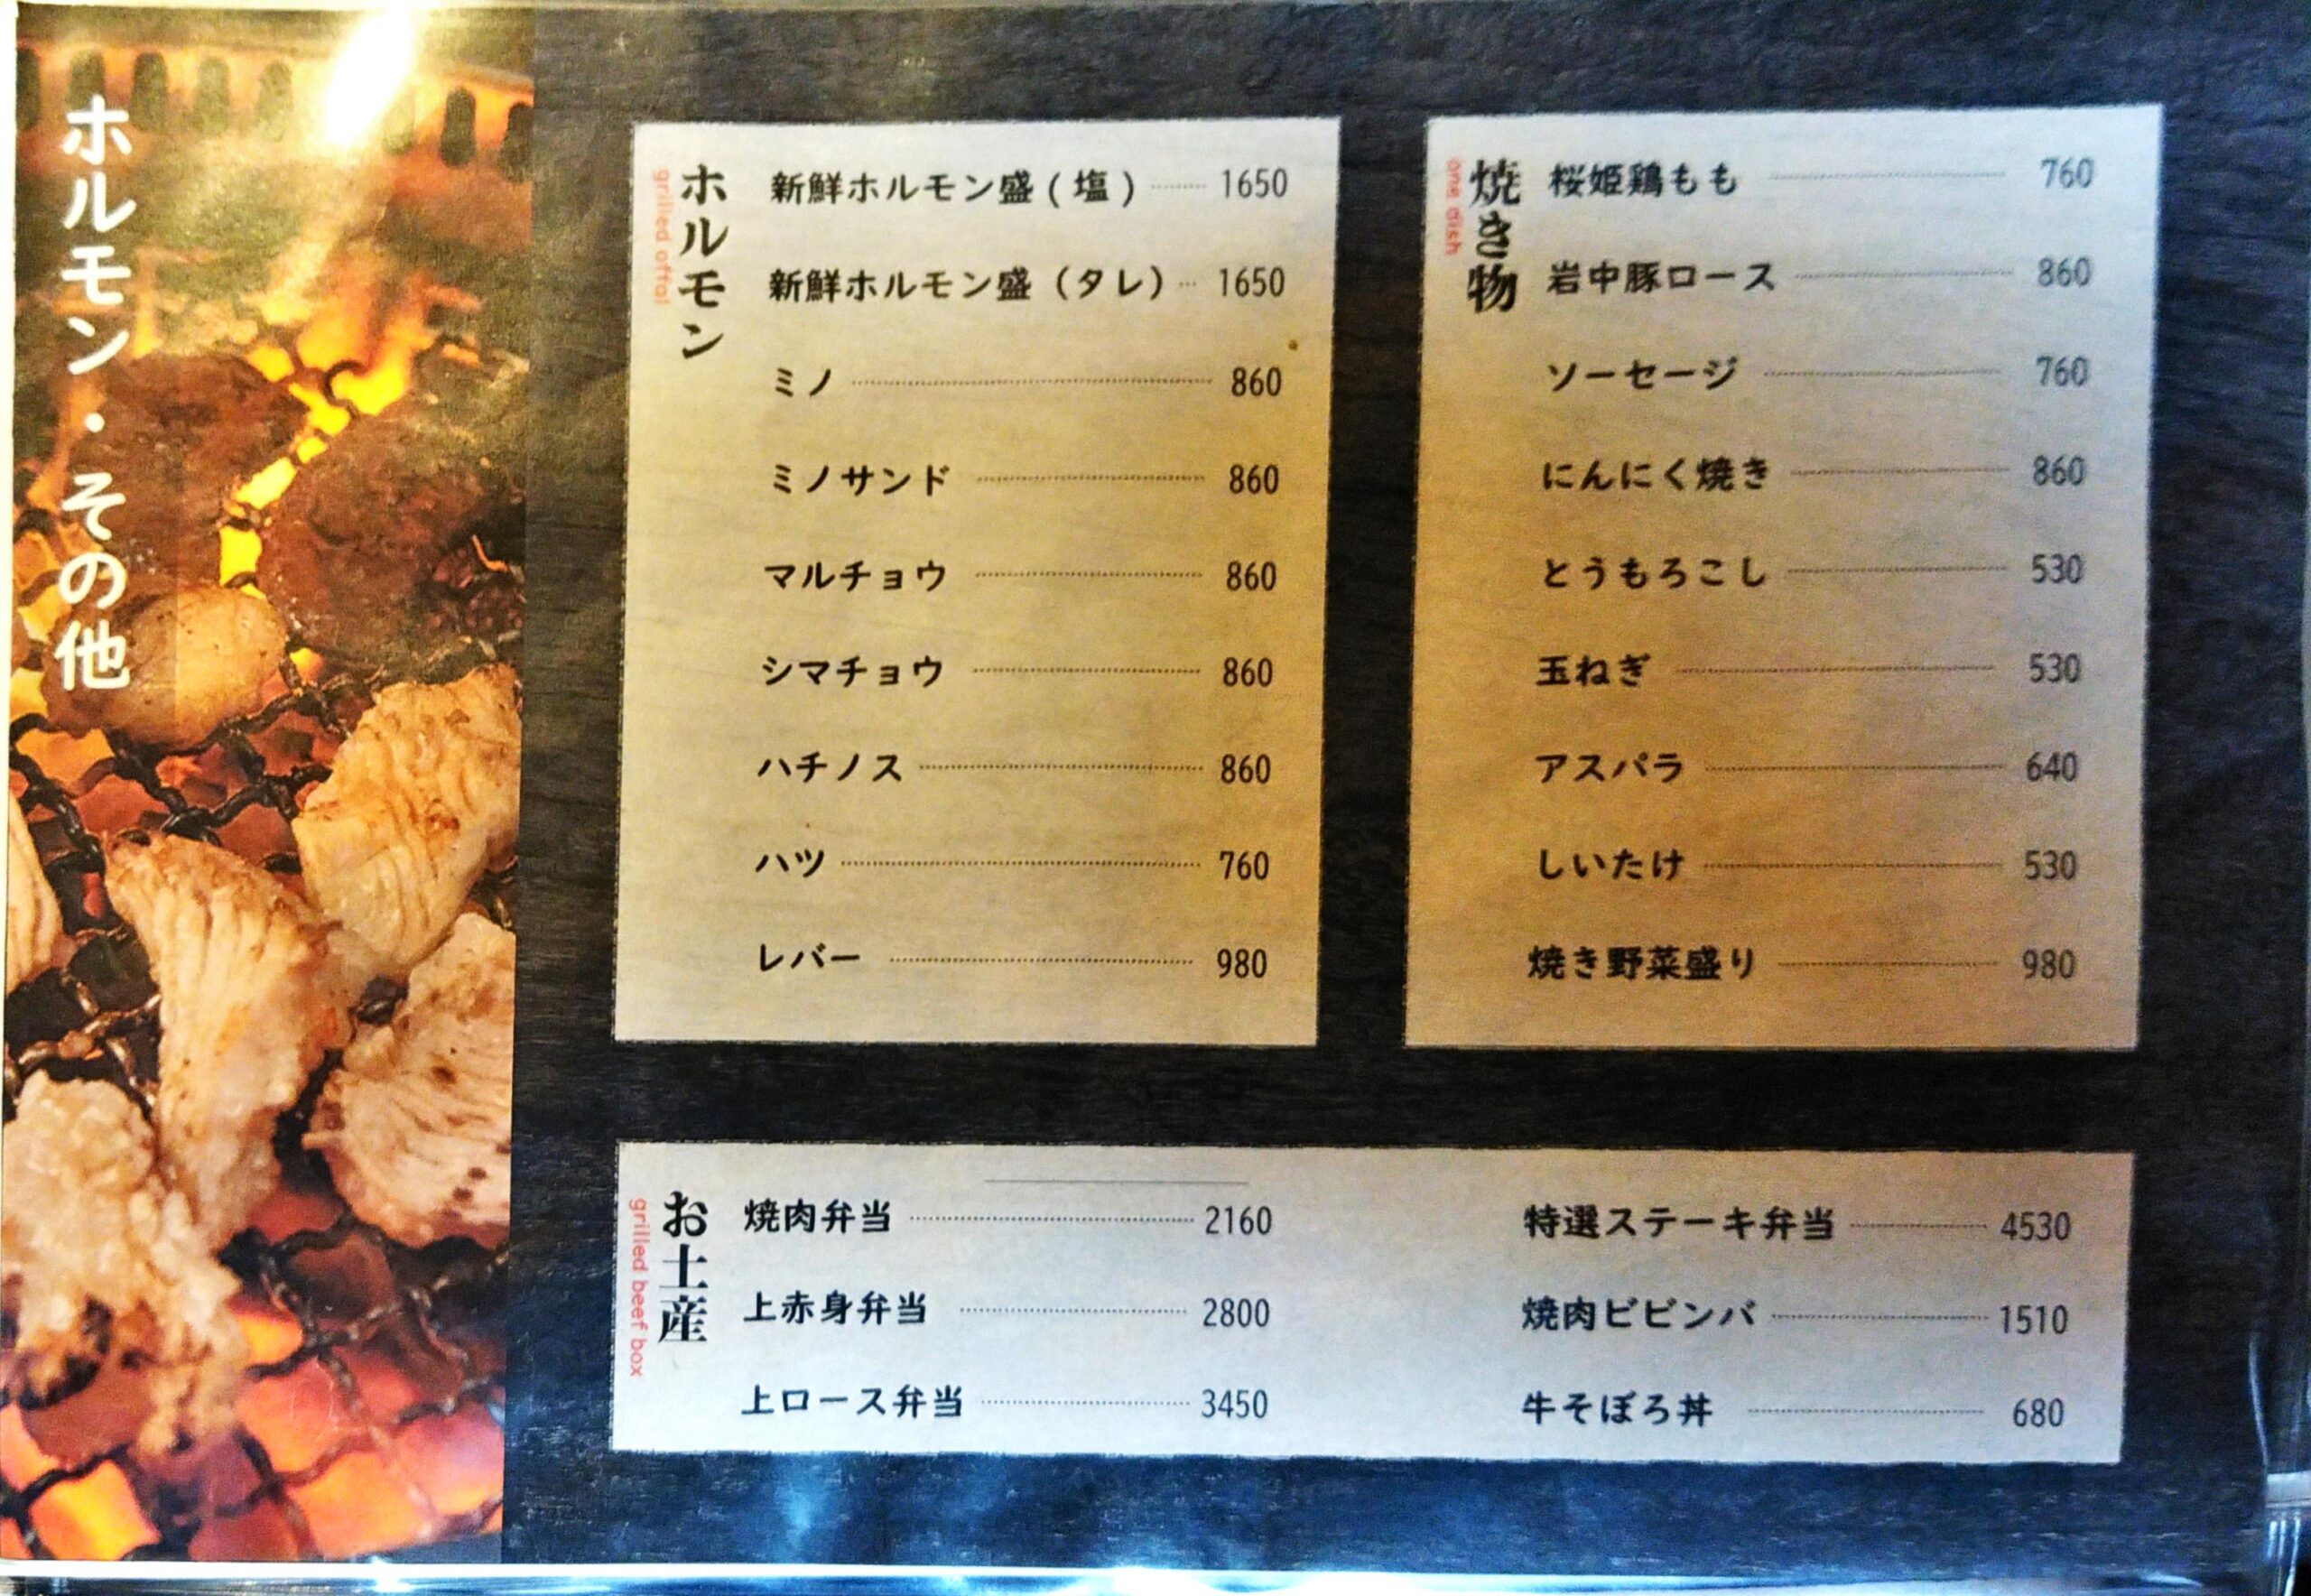 ホルモン・その他
ホルモン
grilled offal
新鮮ホルモン盛(塩) 1650
新鮮ホルモン盛(タレ) 1650
ミノ 860
ミノサンド 860
マルチョウ 860
シマチョウ 860
ハチノス 860
ハツ 760
レバー 980
焼き物
one dish
桜姫鶏もも 760
岩中豚ロース 860
ソーセージ 760
にんにく焼き 860
とうもろこし 530
玉ねぎ 530
アスパラ 640
しいたけ 530
焼き野菜盛り 980
お土産
grilled beef box
焼肉弁当 2160
上赤身弁当 2800
上ロース弁当 3450
特選ステーキ弁当 4530
焼肉ビビンバ 1510
牛そぼろ丼 680